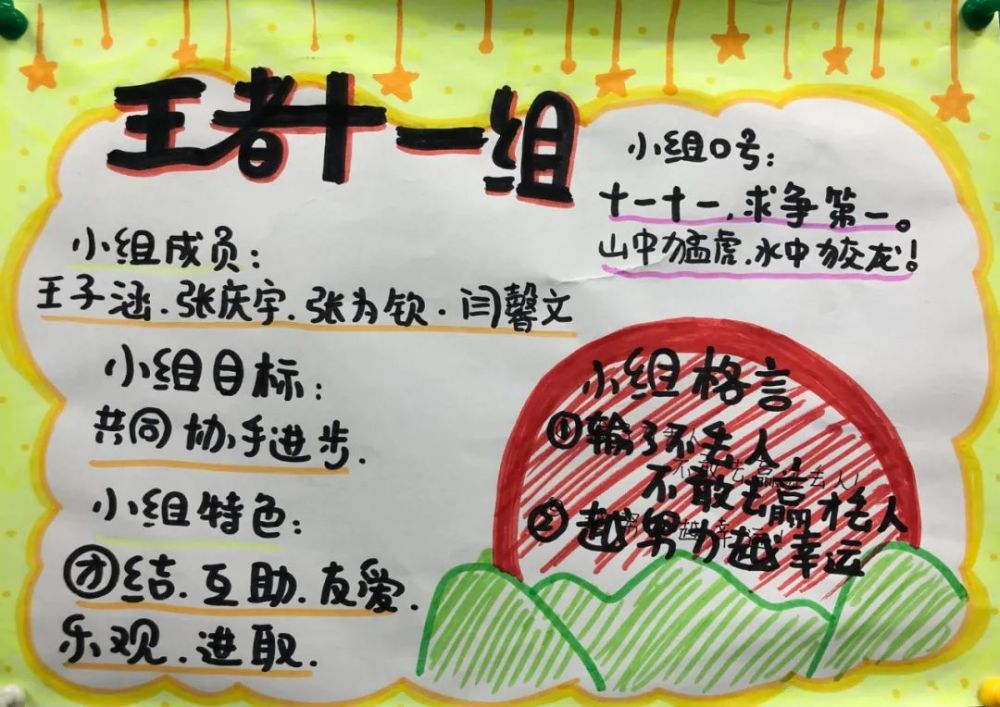 王者十一组
小组口号：
十一十一，求争第一。
山中猛虎，水中蛟龙！
小组成员：
王子涵、张庆宇、张为钦、闫馨文
小组目标：
共同协手进步.
小组特色：
团结、互助、友爱、
乐观、进取.
小组格言
①输了不丢人，
不敢去赢才丢人
②越努力越幸运